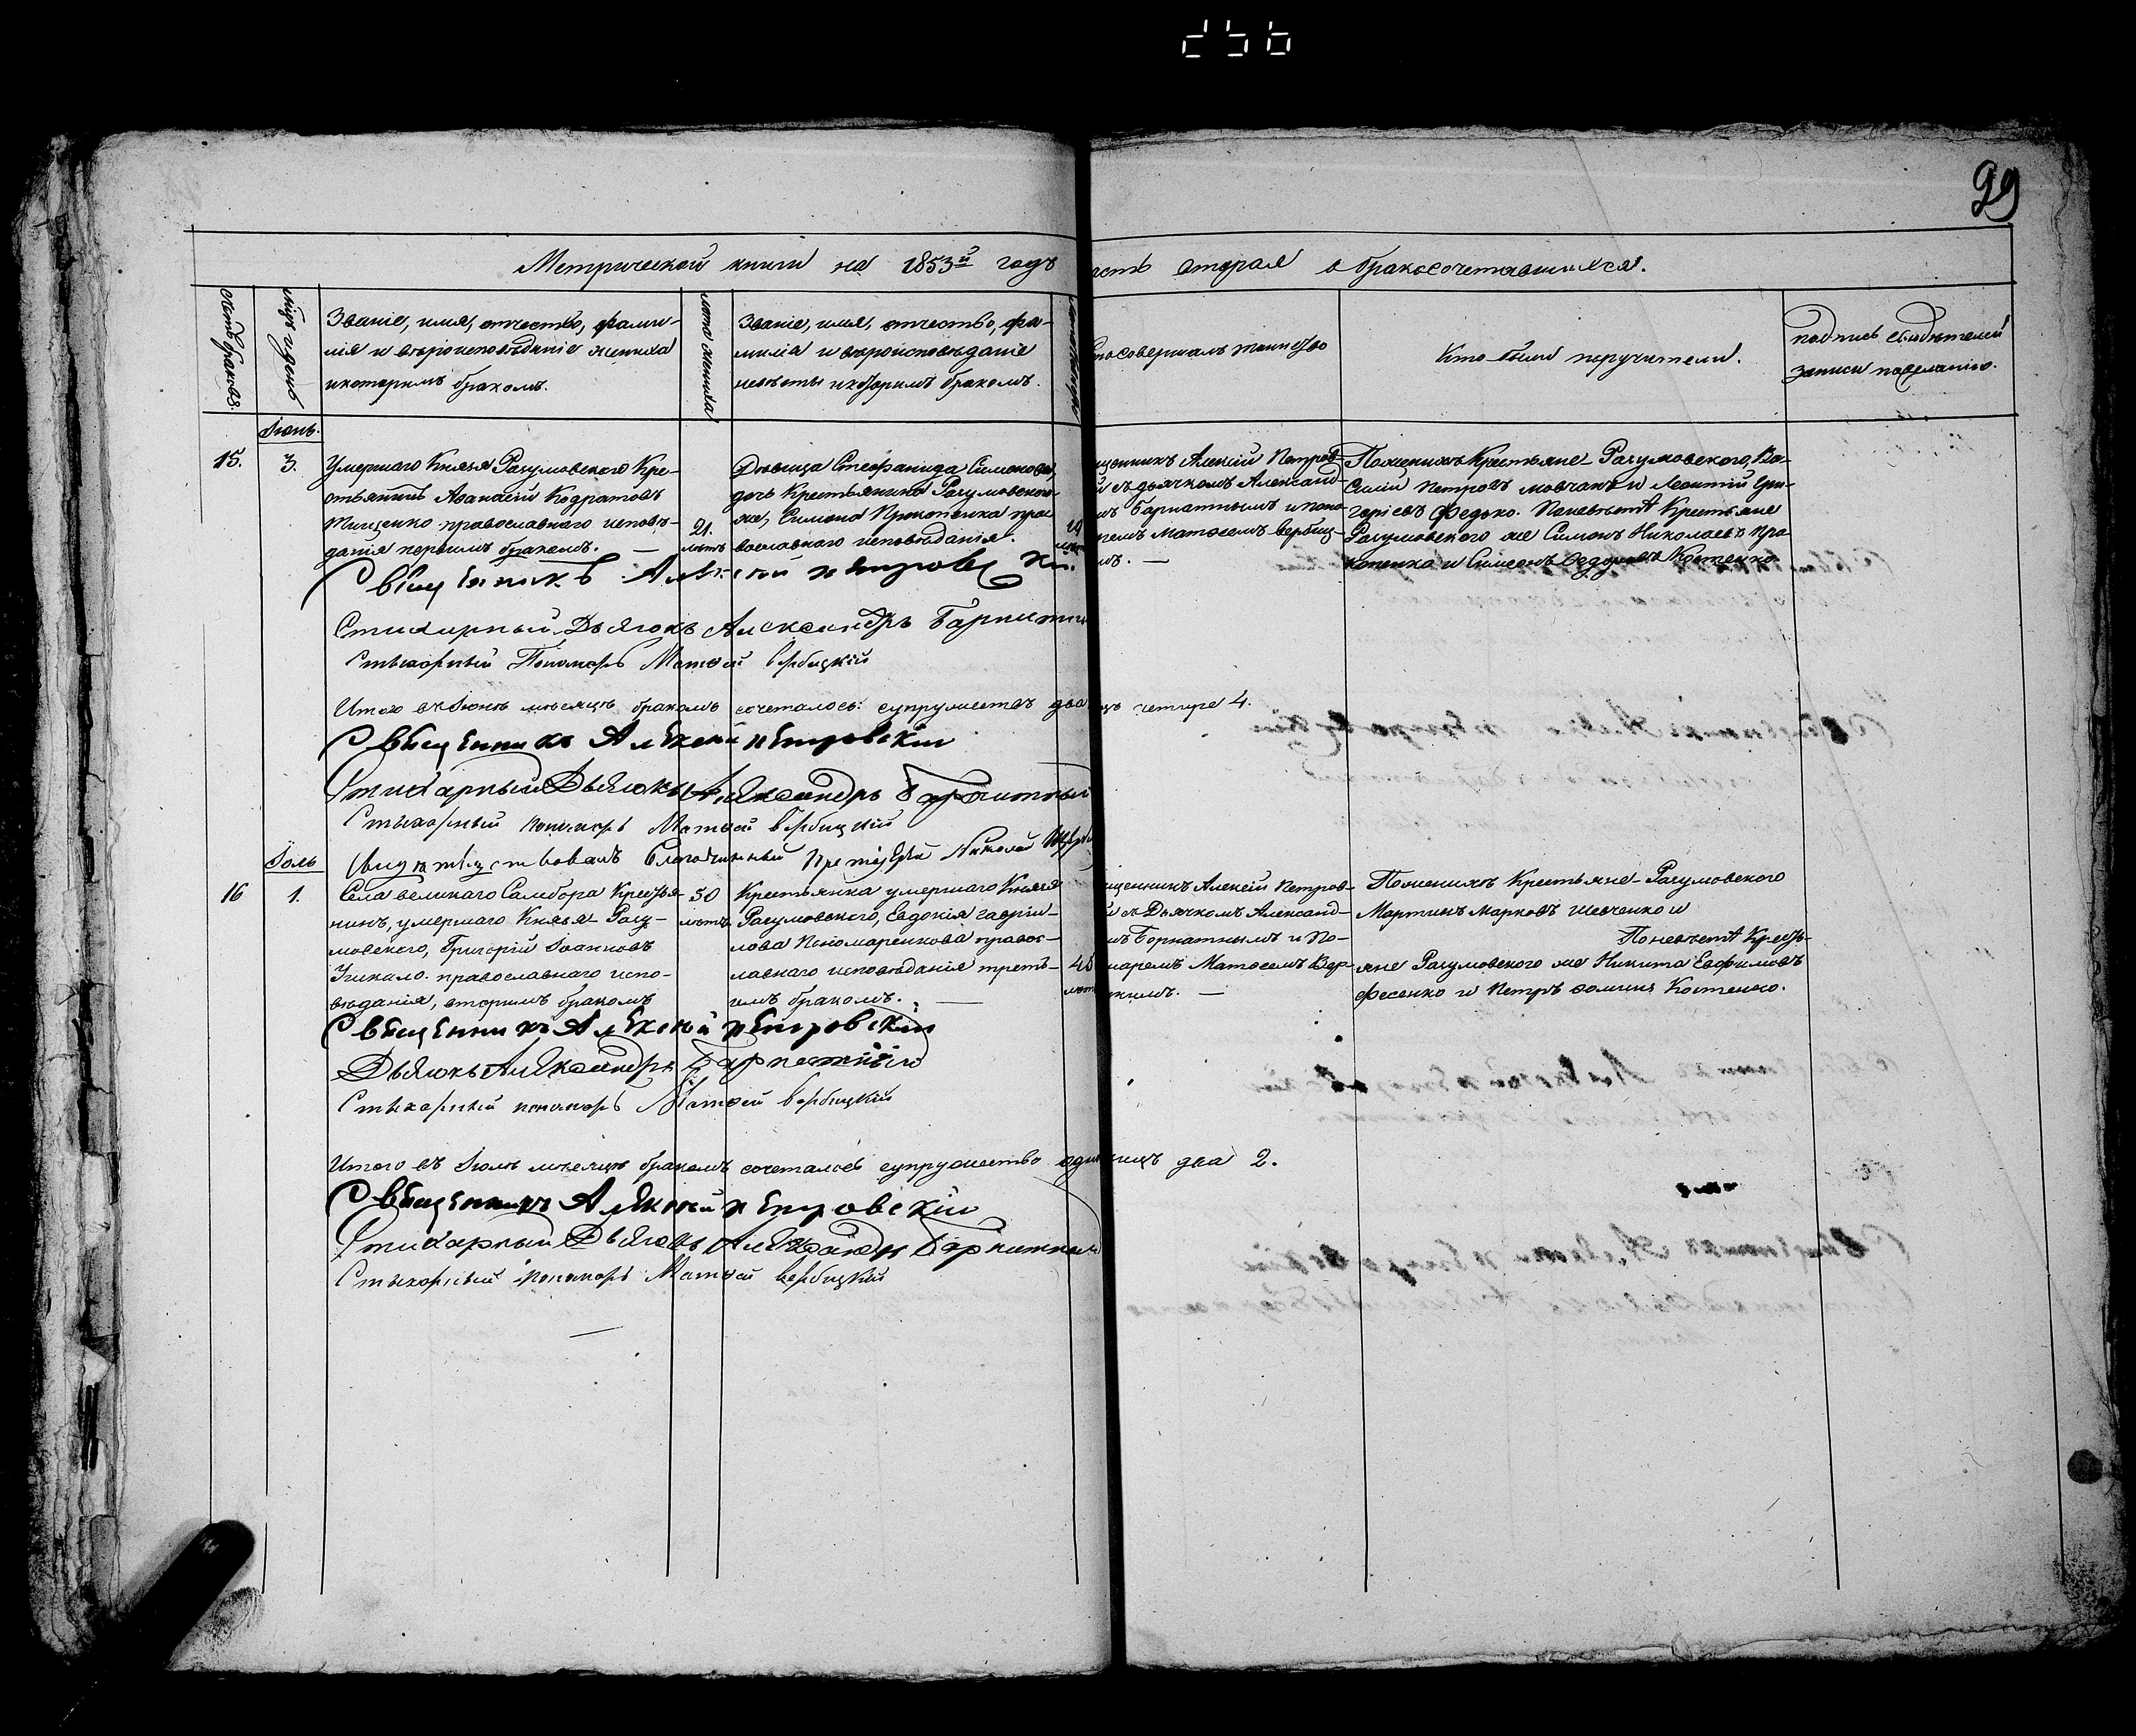 256
99
Метрической книги на 1853й годъ
асть вторая о бракосочетавшихся.
Счетъ браковъ.
Мѣцъ и день
Званіе, имя, отчество, фами-
лія и вѣроисповѣданіе жениха
и которымъ бракомъ.
лѣта жениха
Званіе, имя, отчество, фа-
милія и вѣроисповѣданіе
невѣсты и которымъ бракомъ.
Кто совершалъ таинство
Кто были поручители.
подпись свидѣтелей
записи по желанію.
Іюнь.
15.
3.
Умершаго Князя Разумовскаго Кре-
стьянинъ Аѳанасій Кодратовъ
Тищенко православнаго исповѣ-
данія первымъ бракомъ. —
21.
лѣтъ
Дѣвица Стефанида Симонова,
дочь Крестьянина Разумовскаго
же, Симона Прокопенка пра
вославнаго исповѣданія.
19
лѣтъ
щенникъ Алексій Петров-
й съ дьячкомъ Александ-
мъ Барнатнымъ и поно-
ремъ Матѳеемъ Вербиц-
мъ. —
По женихѣ Крестьяне Разумовскаго, Ва-
силій Петровъ Мовчанъ и Леонтій Гри-
горіевъ Федько. По невѣстѣ Крестьяне
Разумовскаго же Симонъ Николаевъ Про
копенко и Симеонъ Ѳедоровъ Костенко.
Священникъ Алексій Петровскій
Стихарный Дьячокъ Александръ Барнатны
Стыхарный Пономарь Матѳей Вербицкій
Итого въ Іюнѣ мѣсяцѣ бракомъ сочеталось супружествъ два
цъ четыре 4.
Священникъ Алексій Петровскій
Стихарный Дьячокъ Александръ Барнатный
Стыхарный пономарь Матѳей Вербицкій
Свидѣтельствовалъ Благочинный Протоіерей Николай
Іюль
16
1.
Села великаго Самбора Крестья-
нинъ, умершаго Князя Разу-
мовскаго, Григорій Іоанновъ
православнаго испо-
вѣданія, вторымъ бракомъ
50
лѣтъ
Крестьянка умершаго Князя
Разумовскаго, Евдокія Гаврии-
лова Пономаренкова правос-
лавнаго исповѣданія треть-
имъ бракомъ. —
45
лѣтъ
щенникъ Алексій Петров-
й съ Дьячкомъ Александ-
мъ Борнатнымъ и По-
маремъ Матѳеемъ Вер-
цкимъ. —
По женихѣ Крестьяне Разумовскаго
Мартинъ Марковъ Шевченко и
По невѣстѣ Кресть-
яне Разумовскаго же Никита Евфимовъ
Фесенко и Петръ Ѳоминъ Костенко.
Священникъ Алексій Петровскій
Дьячокъ Александръ Барнатный
Стыхарный пономарь Матѳей Вербицкій
Итого въ Іюлѣ мѣсяцѣ бракомъ сочеталось супружество одно
лицъ два 2.
Священникъ Алексій Петровскій
Стихарный Дьячокъ Александръ Барнатный
Стыхарный пономарь Матѳей Вербицкій